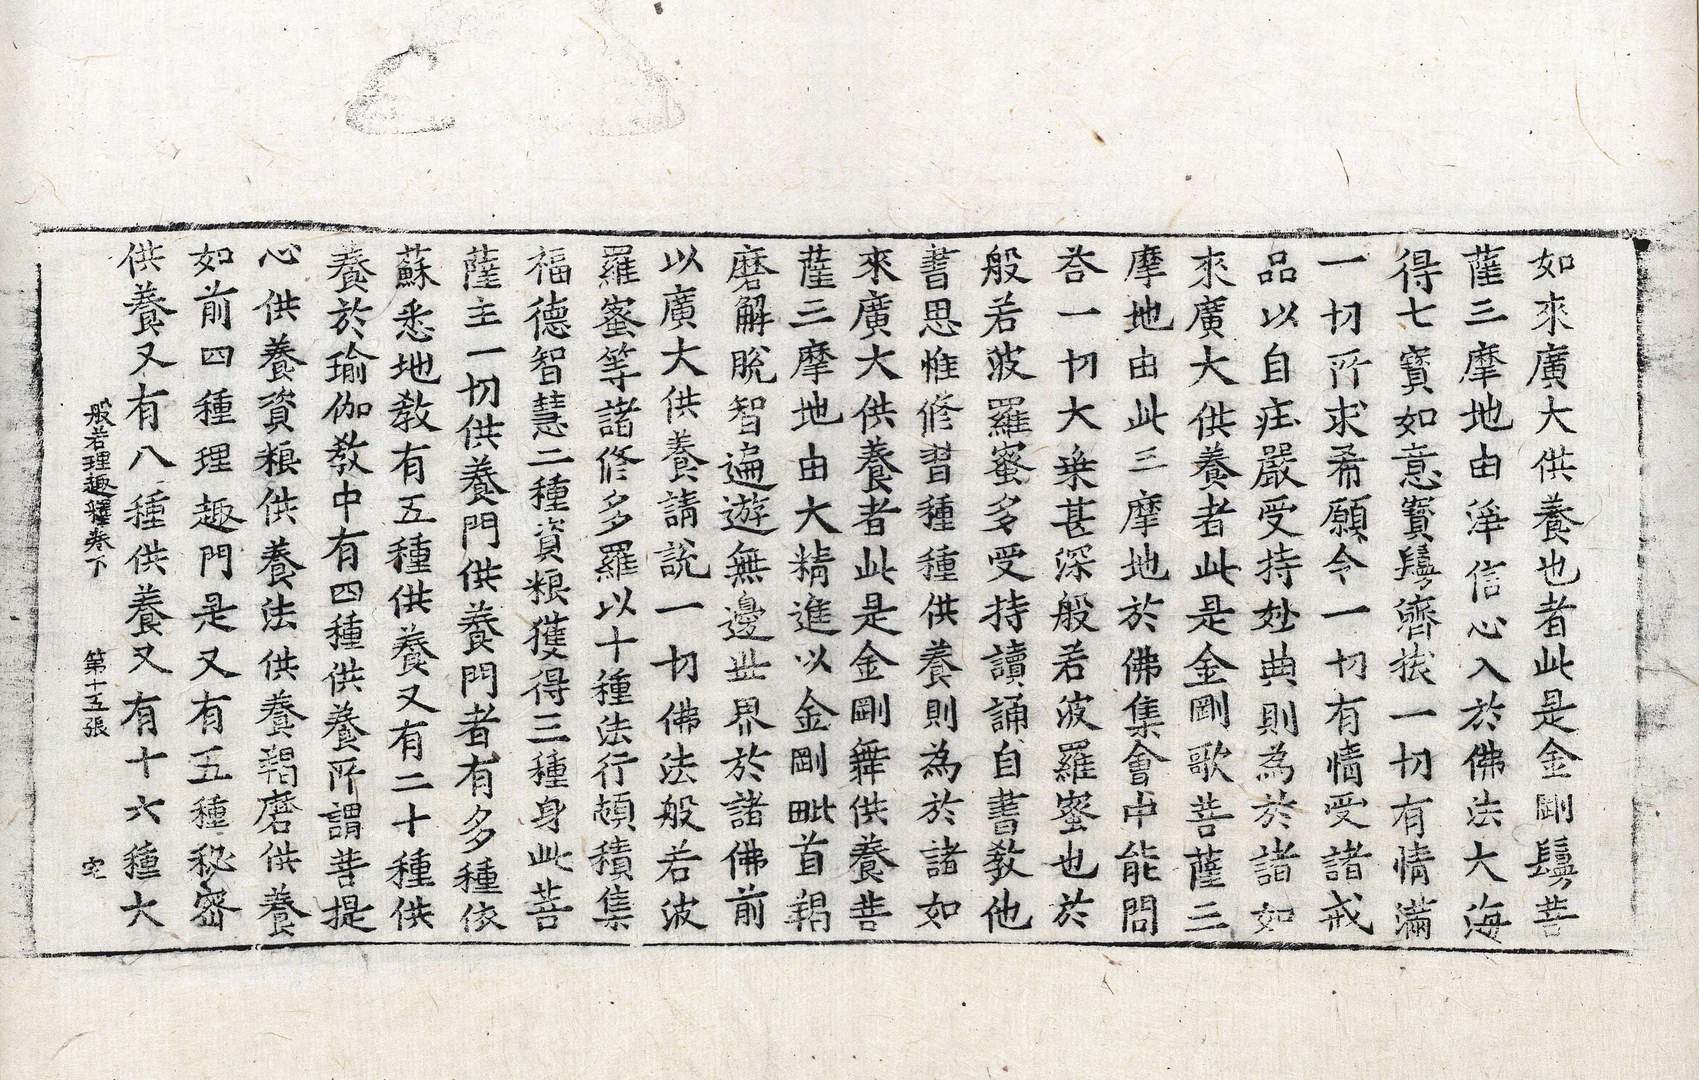 如來廣大供養也者此是金剛鬘菩
薩三摩地由淨信心入於佛法大海
得七寶如意寶鬘濟拔一切有情滿
一切所求希願令一切有情受諸戒
品以自莊嚴受持妙典則為於諸如
來廣大供養者此是金剛歌菩薩三
摩地由此三摩地於佛集會中能問
荅一切大乗甚深般若波羅蜜也於
般若波羅蜜多受持讀誦自書教他
書思惟修習種種供養則為於諸如
來廣大供養者此是金剛舞供養菩
薩三摩地由大精進以金剛毗首羯
磨解脫智遍遊無邊世界於諸佛前
以廣大供養請說一切佛法般若波
羅蜜等諸修多羅以十種法行頓積集
福德智慧二種資粮獲得三種身此菩
薩主一切供養門供養門者有多種依
蘇悉地教有五種供養又有二十種供
養於瑜伽教中有四種供養所謂菩提
心供養資粮供養法供養羯磨供養
如前四種理趣門是又有五種秘密
供養又有八種供養又有十六種大
般若理趣釋卷下 第十五張 宅